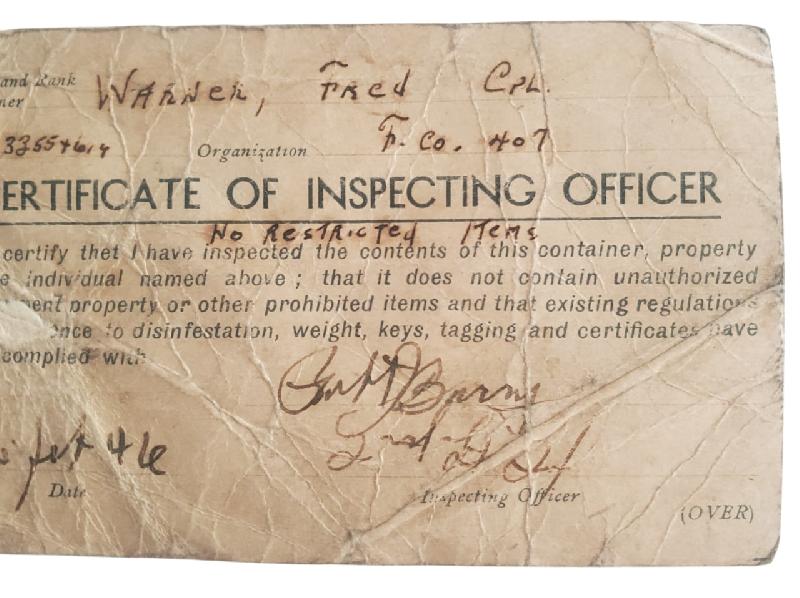 and Rank Warner, Fred Cpl.
ner
Organization F. Co. 407
ERTIFICATE OF INSPECTING OFFICER
No Restricted Items
certify thet I have inspected the contents of this container, property
e individual named above; that it does not contain unauthorized
ment property or other prohibited items and that existing regulations
ence to disinfestation, weight, keys, tagging and certificates have
complied with
Burns
46
Date
Inspecting Officer
(OVER)